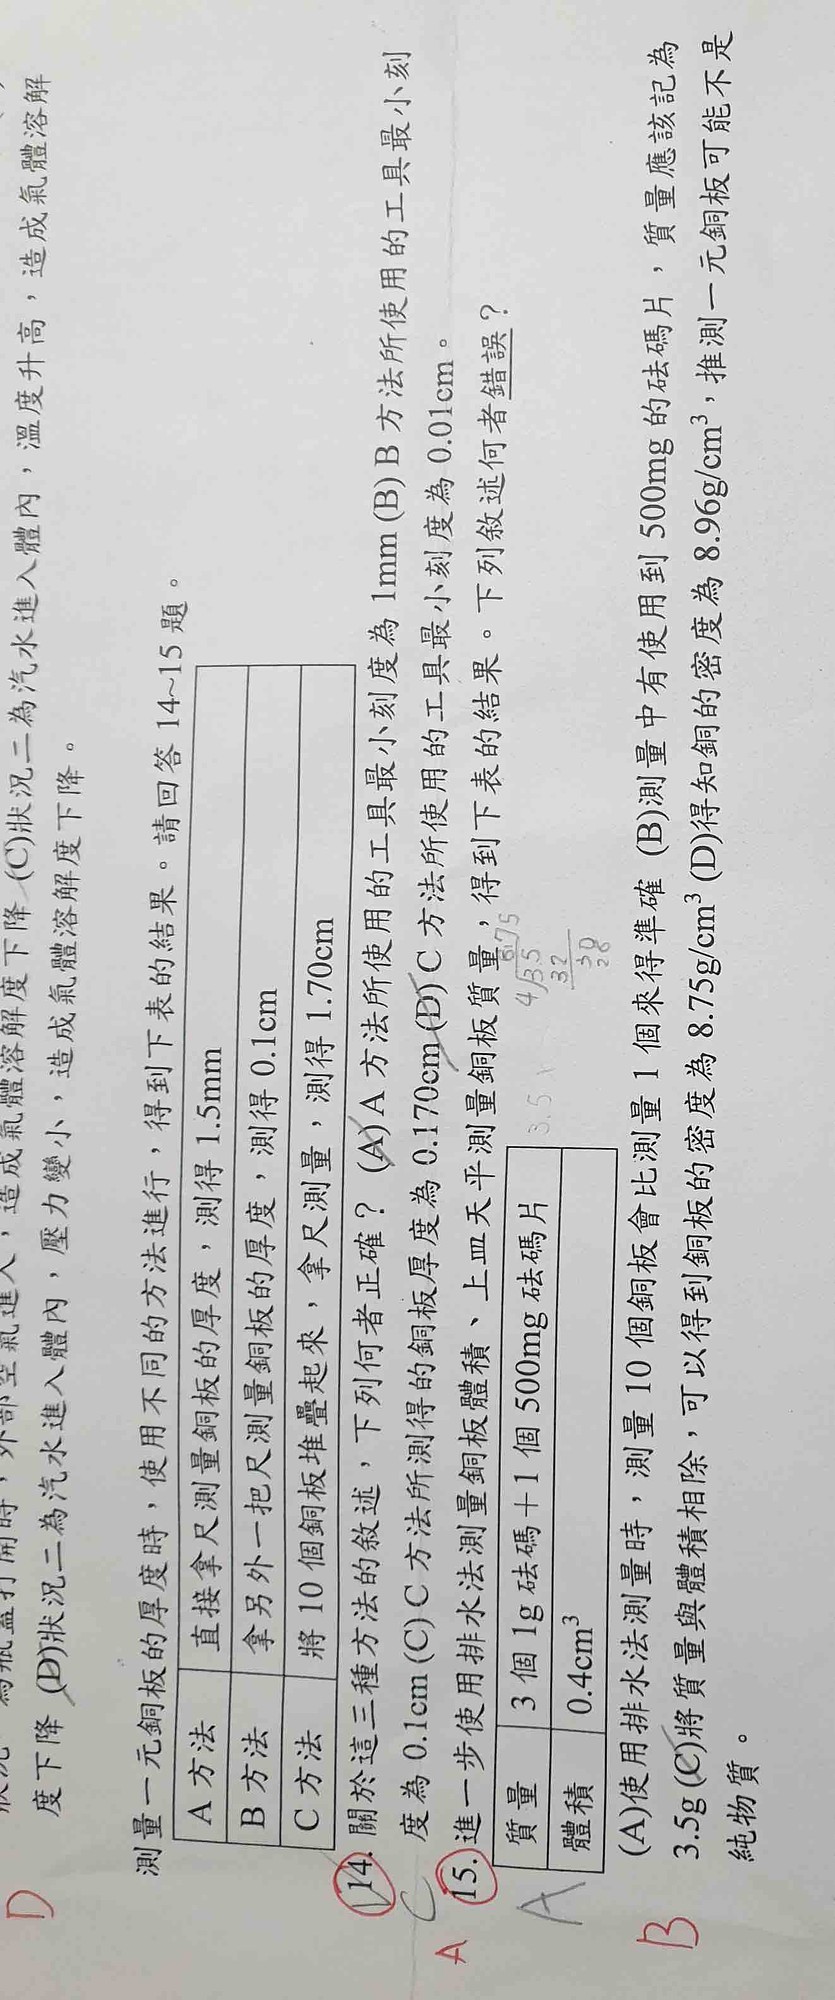 度下降 (D)狀況二為汽水進入體內,壓力變小,造成氣體溶解度下降。
D
測量一元銅板的厚度時,使用不同的方法進行,得到下表的結果。請回答 14~15 題。
A 方法 直接拿尺測量銅板的厚度,測得 1.5mm
B 方法 拿另外一把尺測量銅板的厚度,測得 0.1cm
C 方法 將 10 個銅板堆疊起來,拿尺測量,測得 1.70cm
14. 關於這三種方法的敘述,下列何者正確? (A) A 方法所使用的工具最小刻度為 1mm (B) B 方法所使用的工具最小刻
度為 0.1cm (C) C 方法所測得的銅板厚度為 0.170cm (D) C 方法所使用的工具最小刻度為 0.01cm。
C
A
15. 進一步使用排水法測量銅板體積、上皿天平測量銅板質量,得到下表的結果。下列敘述何者錯誤?
A
質量 3 個 1g 砝碼+1 個 500mg 砝碼片
3.5
體積 0.4cm³
875
4/35
32
30
28
B
(A)使用排水法測量時,測量 10 個銅板會比測量 1 個來得準確 (B)測量中有使用到 500mg 的砝碼片,質量應該記為
3.5g (C)將質量與體積相除,可以得到銅板的密度為 8.75g/cm³ (D)得知銅的密度為 8.96g/cm³,推測一元銅板可能不是
純物質。